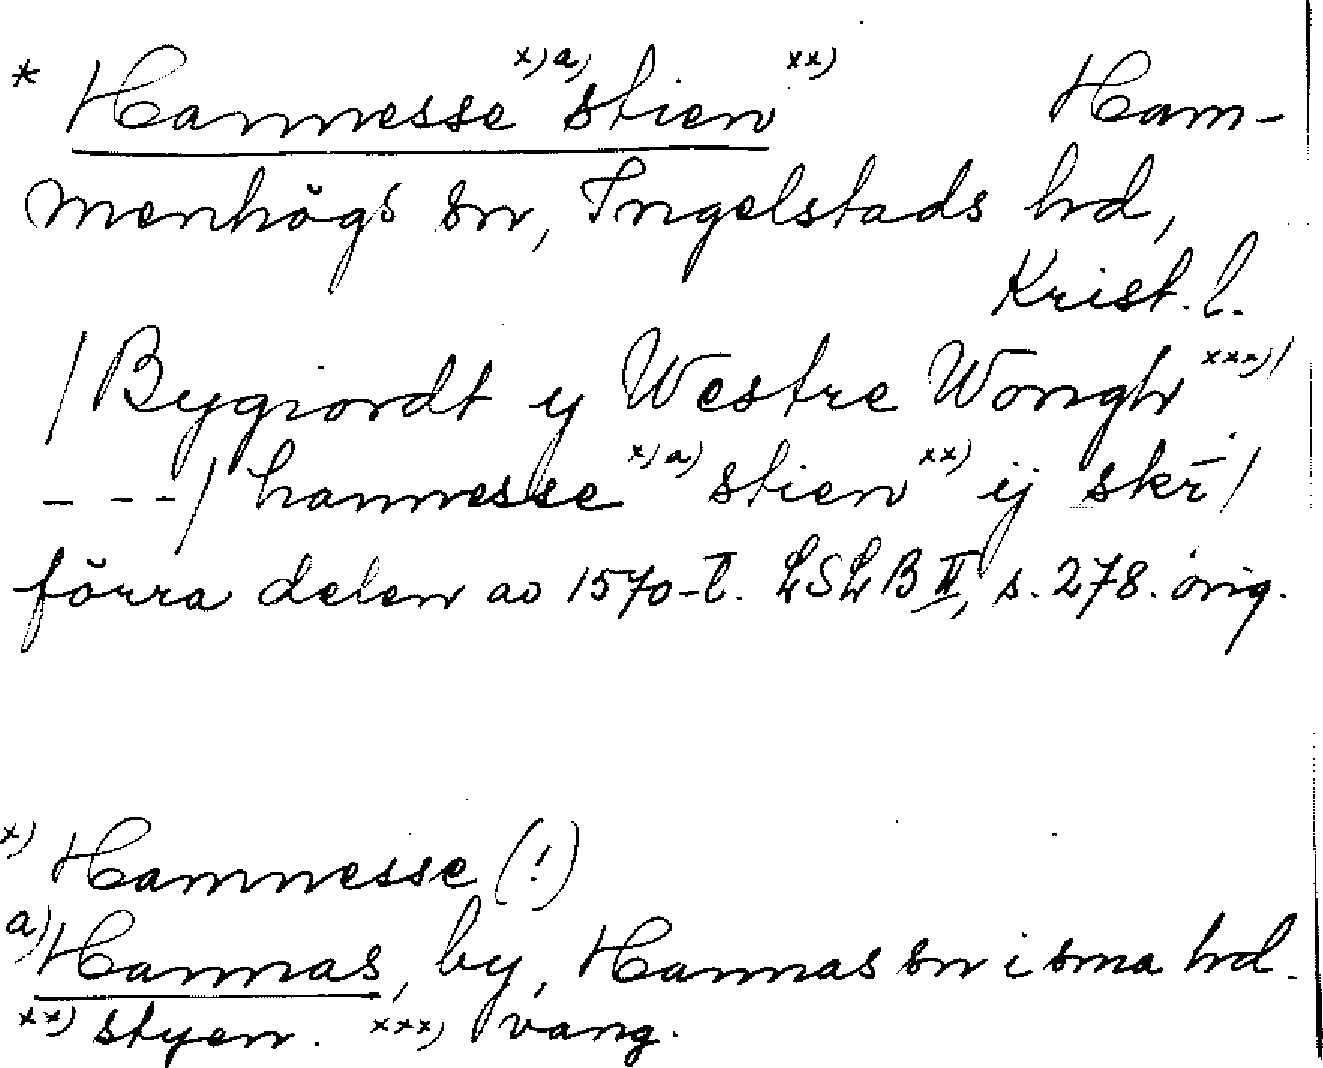 * Hannesse x)a) stien xx) Ham-
menhögs sn, Ingelstads hd,
Krist. l.
/Bygiordt y Westre Wongh xxx)/
- - -/ hannesse x)a) stien xx) ij skr̄/
förra delen av 1570-t. LSLB II, s. 278. orig.
x) Hamnesse (!)
a) Hannas, by, Hannas sn i sma hd.
xx) styen. xxx) vang.